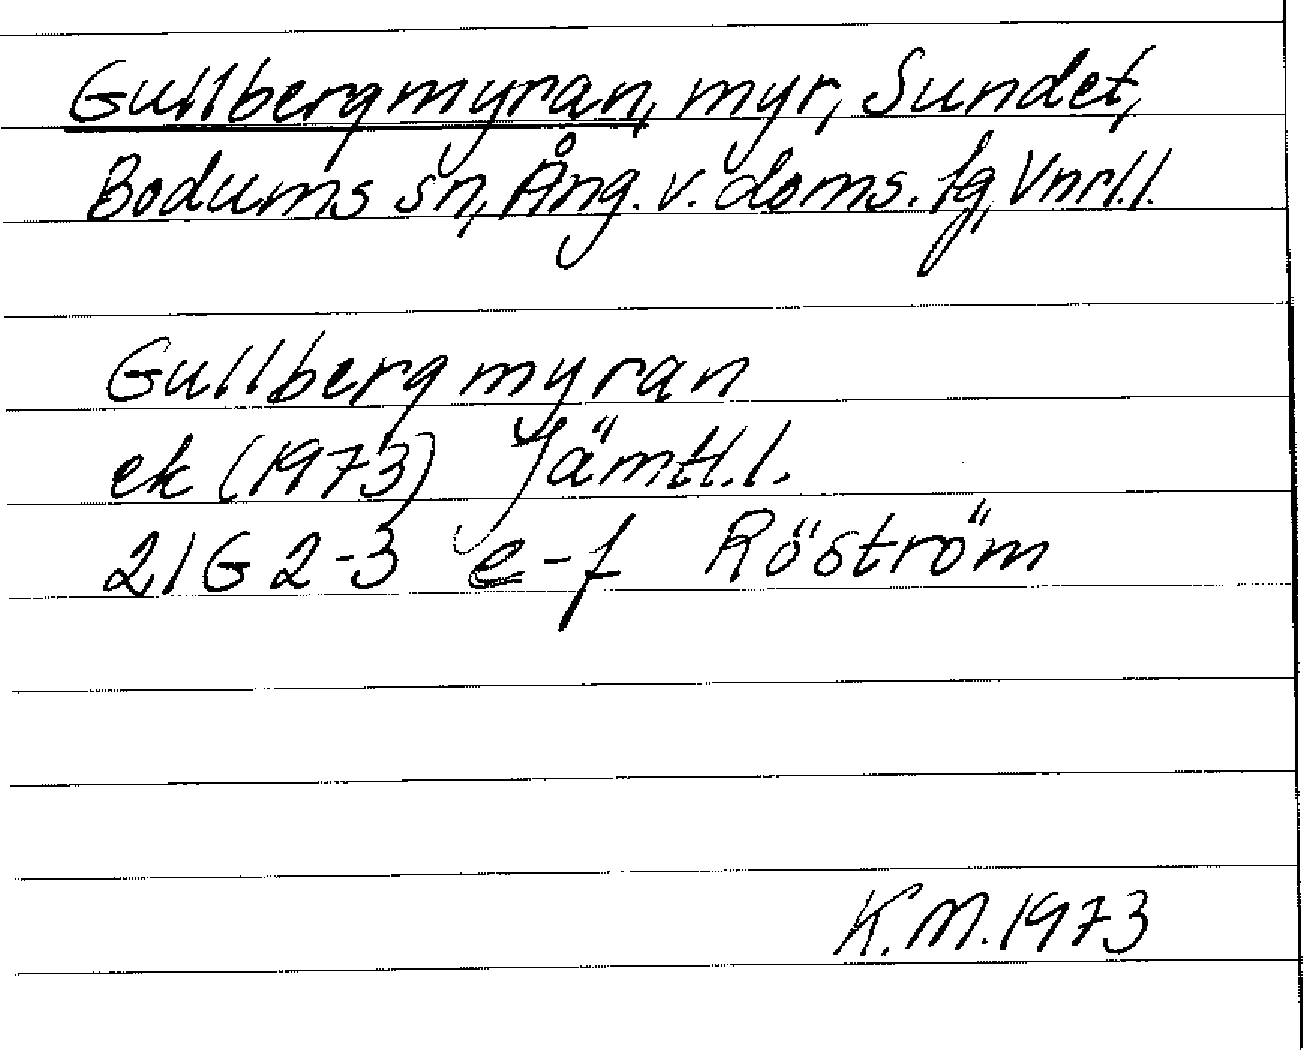 Gullbergmyran, myr, Sundet,
Bodums sn, Ång. v. doms. fg, Vnrl.l.
Gullbergmyran
ek (1973) Jämtl.l.
21G 2-3 e-f Röström
K.M. 1973